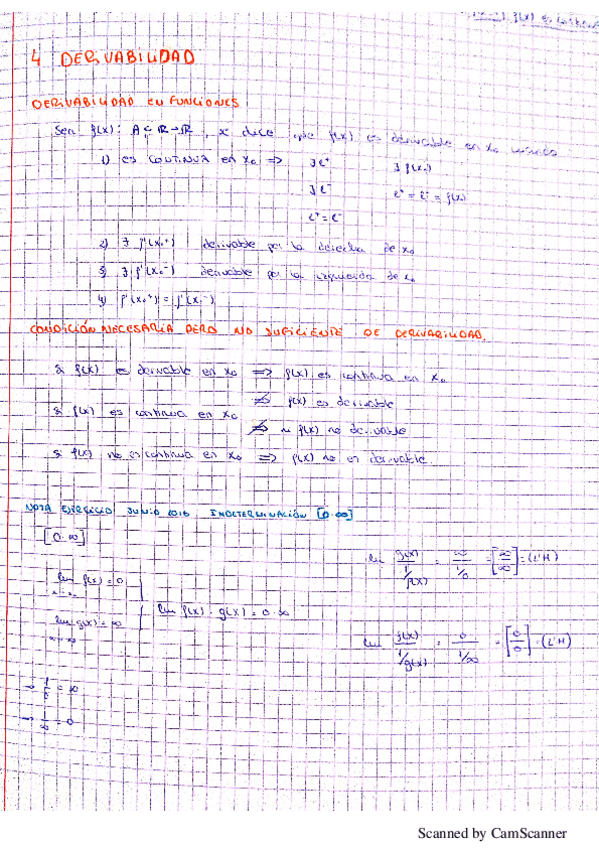 f(x) es
4 DERIVABILIDAD
DERIVABILIDAD EN FUNCIONES
Sea f(x): A ⊂ R → R, se dice que f(x) es derivable en x₀ cuando
1) es CONTINUA en x₀ ⇒ ∃ L⁺ ∃ f(x₀)
∃ L⁻ L⁺ = L⁻ = f(x₀)
L⁺ = L⁻
2) ∃ f'(x₀⁺) derivable por la derecha de x₀
3) ∃ f'(x₀⁻) derivable por la izquierda de x₀
4) f'(x₀⁺) = f'(x₀⁻)
CONDICIÓN NECESARIA PERO NO SUFICIENTE DE DERIVABILIDAD.
Si f(x) es derivable en x₀ ⇒ f(x) es continua en x₀
⇏ f(x) es derivable
Si f(x) es continua en x₀
⇏ f(x) no derivable
Si f(x) no es continua en x₀ ⇒ f(x) no es derivable.
NOTA EJERCICIO JUNIO 2016 INDETERMINACIÓN [0·∞]
[0·∞]
lim f(x) = 0
lim f(x) · g(x) = 0·∞
lim g(x) = ∞
lim g(x)/(1/f(x)) = ∞/(1/0) = [∞/∞] = (L'H)
lim f(x)/(1/g(x)) = 0/(1/∞) = [0/0] = (L'H)
→ 1/0 = ∞
→ 1/∞ = 0
Scanned by CamScanner